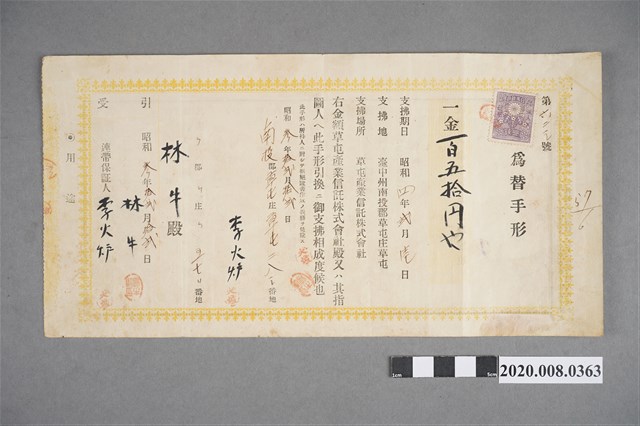 第 號
為替手形
一金百五拾円也
支拂期日 昭和四年弍月 日
支拂地 臺中州南投郡草屯庄草屯
支拂場所 草屯產業信託株式會社
右金額草屯產業信託株式會社殿又ハ其指
圖人ヘ此手形引換ニ御支拂相成度候也
昭和叁年拾弍月拾弍日
南投郡草屯庄草屯 番地
李火炉
郡 庄 番地
林牛殿
引受
昭和叁年拾弍月拾弍日
林牛
連帶保証人 李火炉
用途
57
6
1cm
5cm
2020.008.0363